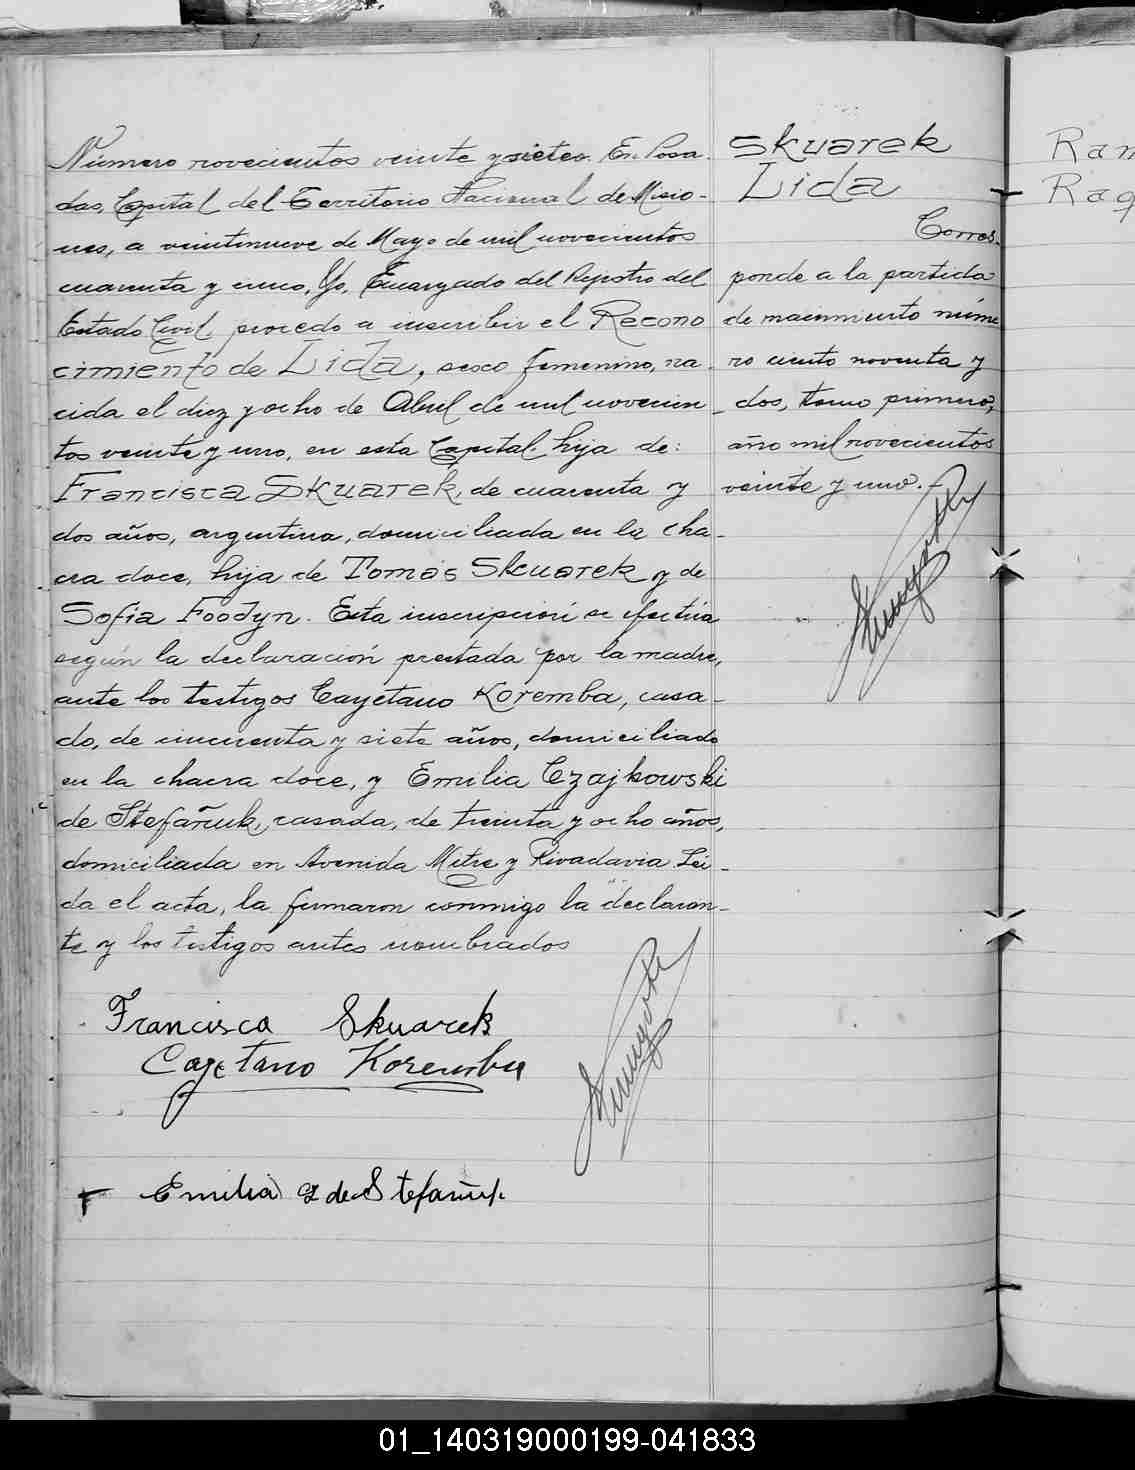 Número novecientos veinte y siete. En Posa-
das, Capital del Territorio Nacional de Misio-
nes, a veintinueve de Mayo de mil novecientos
cuarenta y cinco, Yo, Encargado del Registro del
Estado Civil, procedo a inscribir el Recono
cimiento de Lida, sexo femenino, na-
cida el diez y ocho de Abril de mil novecien
tos veinte y uno, en esta Capital. hija de:
Francisca Skuarek, de cuarenta y
dos años, argentina, domiciliada en la cha-
cra doce, hija de Tomás Skuarek y de
Sofia Foodyn. Esta inscripción se efectúa
según la declaración prestada por la madre,
ante los testigos Cayetano Koremba, casa-
do, de cincuenta y siete años, domiciliado
en la chacra doce, y Emilia Czajkowski
de Stefañuk, casada, de treinta y ocho años,
domiciliada en Avenida Mitre y Rivadavia. Lei-
da el acta, la firmaron conmigo la declaran-
te y los testigos antes nombrados
Francisca Skuarek
Cayetano Koremba
Emilia de Stefañuk
Skuarek
Lida
Corres-
ponde a la partida
de nacimiento núme
ro ciento noventa y
dos, tomo primero,
año mil novecientos
veinte y uno.-
Ram
Raq
01_140319000199-041833